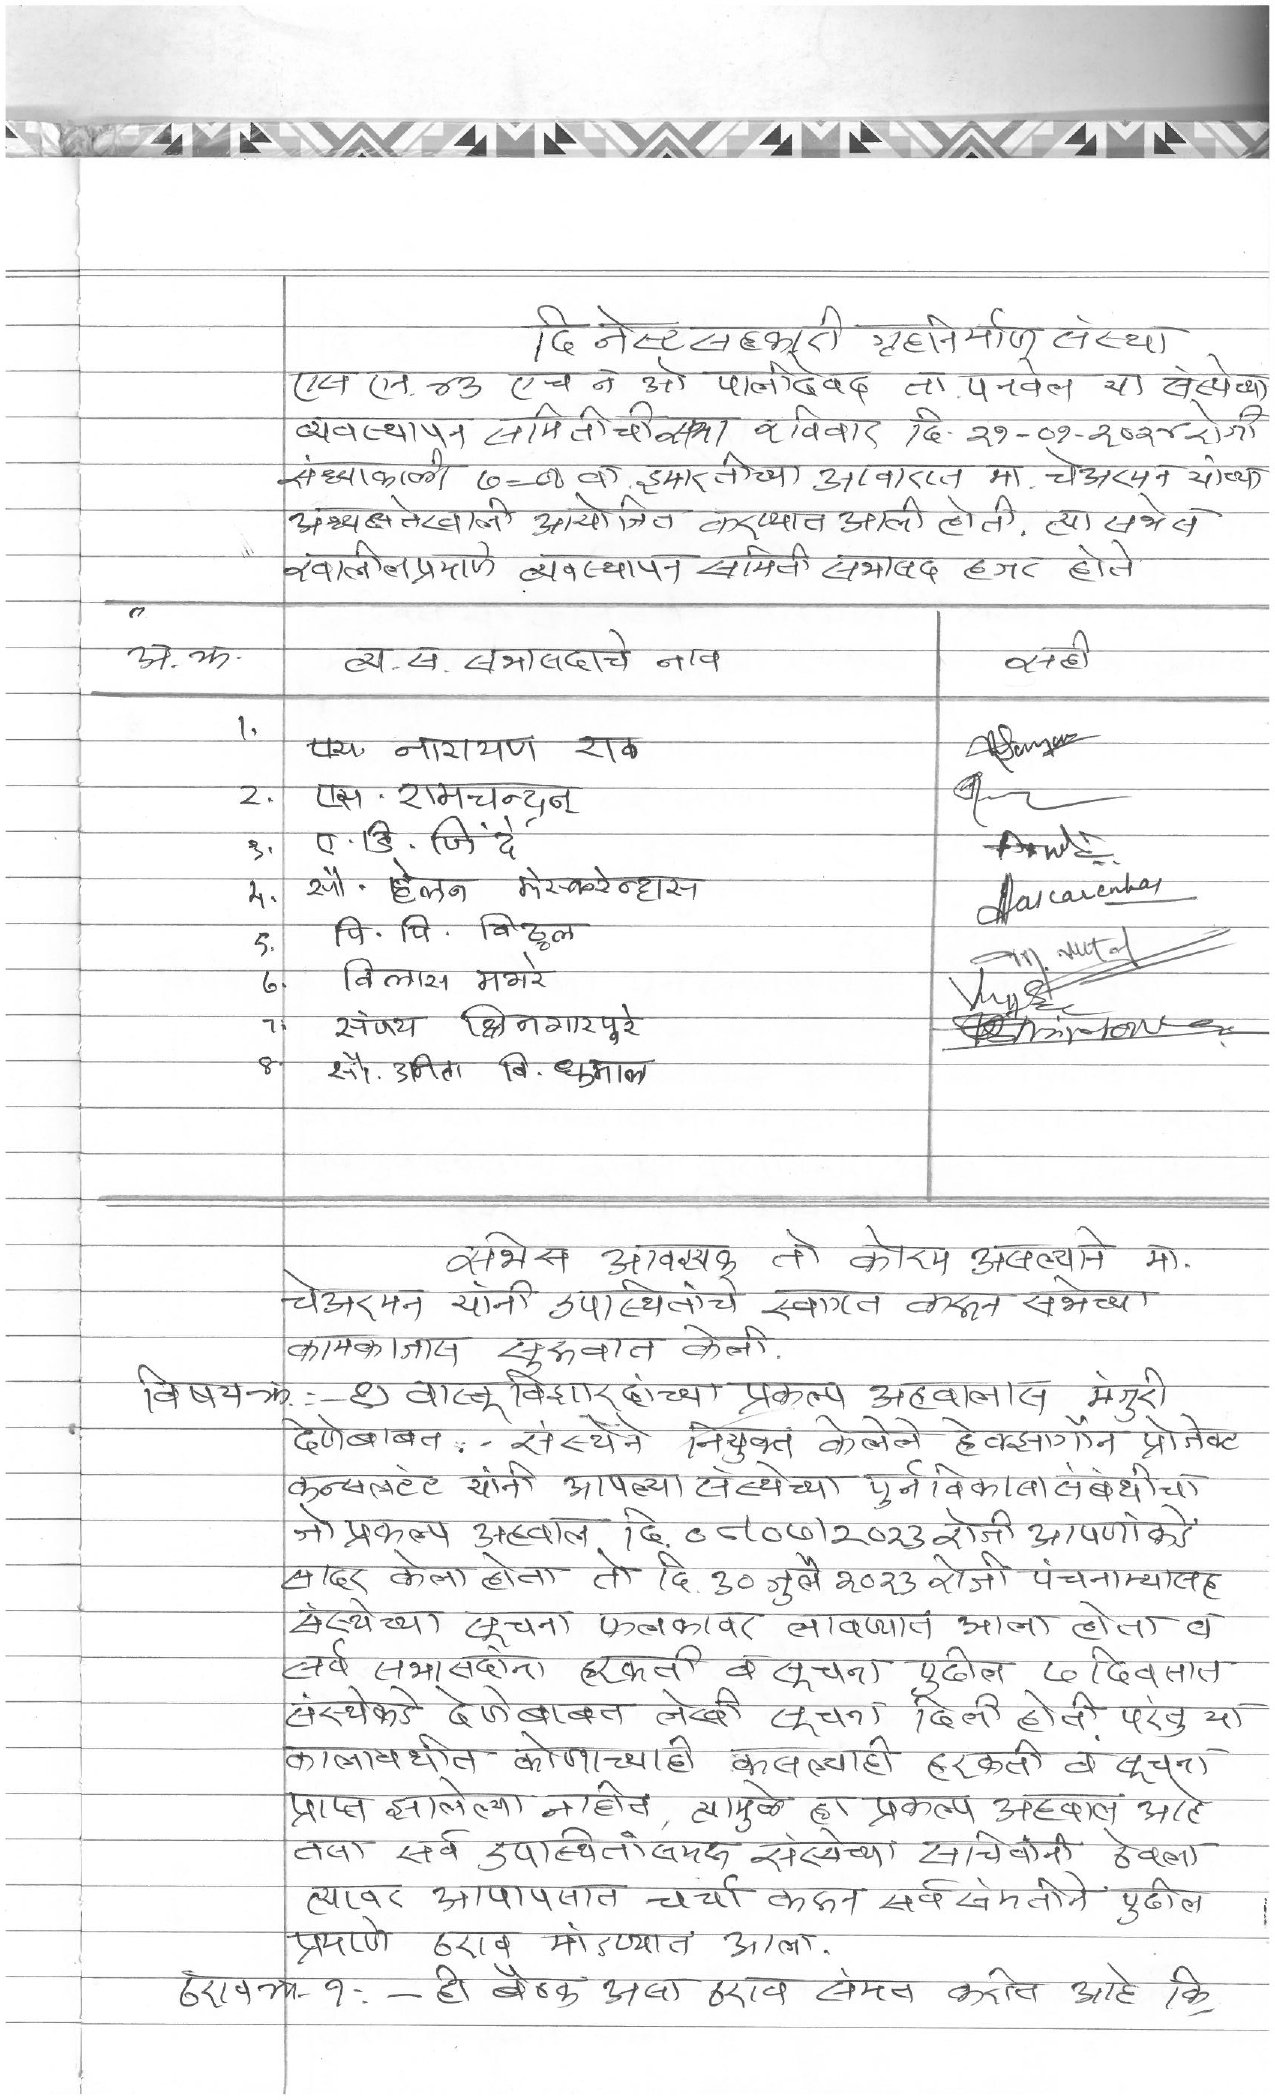 दि नेस्ट सहकारी गृहनिर्माण संस्था
एस एन. ४३ एच नं ओ पालीदेवद ता. पनवेल या संस्थेच्या
व्यवस्थापन समितीची सभा रविवार दि. २१-०१-२०२४ रोजी
संध्याकाळी ७-०० वा. इमारतीच्या आवारात मा. चेअरमन यांच्या
अध्यक्षतेखाली आयोजित करण्यात आली होती. त्या सभेस
खालीलप्रमाणे व्यवस्थापन समिती सभासद हजर होते
अ. क्र. व्य. स. सभासदाचे नाव सही
1. एस. नारायण राव
2. एस. रामचन्द्रन्
3. ए. डि. शिंदे
4. सौ. हेलन मेस्करेन्हास Mascarenhas
5. पि. पि. विठ्ठल
6. विलास मभरे
7. संजय क्षिनगारपुरे
8. सौ. अनिता वि. धुमाल
सभेस आवश्यक तो कोरम असल्याने मा.
चेअरमन यांनी उपस्थितांचे स्वागत करून सभेच्या
कामकाजास सुरूवात केली.
विषय क्र. :- १) वास्तू विशारदांच्या प्रकल्प अहवालास मंजुरी
देणेबाबत :- संस्थेने नियुक्त केलेले हेक्झागॉन प्रोजेक्ट
कन्सलटंट यांनी आपल्या संस्थेच्या पुर्नविकासासंबंधीचा
जो प्रकल्प अहवाल दि. ०८।०७।२०२३ रोजी आपणांकडे
सादर केला होता तो दि. ३० जुलै २०२३ रोजी पंचनाम्यासह
संस्थेच्या सूचना फलकावर लावण्यात आला होता व
सर्व सभासदांना हरकती व सूचना पुढील ७ दिवसात
संस्थेकडे देणेबाबत लेखी सूचना दिली होती. परंतु या
कालावधीत कोणाच्याही कसल्याही हरकती व सूचना
प्राप्त झालेल्या नाहीत, त्यामुळे हा प्रकल्प अहवाल आहे
तसा सर्व उपस्थितांसमक्ष संस्थेच्या सचिवांनी ठेवला
त्यावर आपापसात चर्चा करून सर्व संमतीने पुढील
प्रमाणे ठराव मांडण्यात आला.
ठराव क्र. १ :- ही बैठक असा ठराव संमत करीत आहे कि,